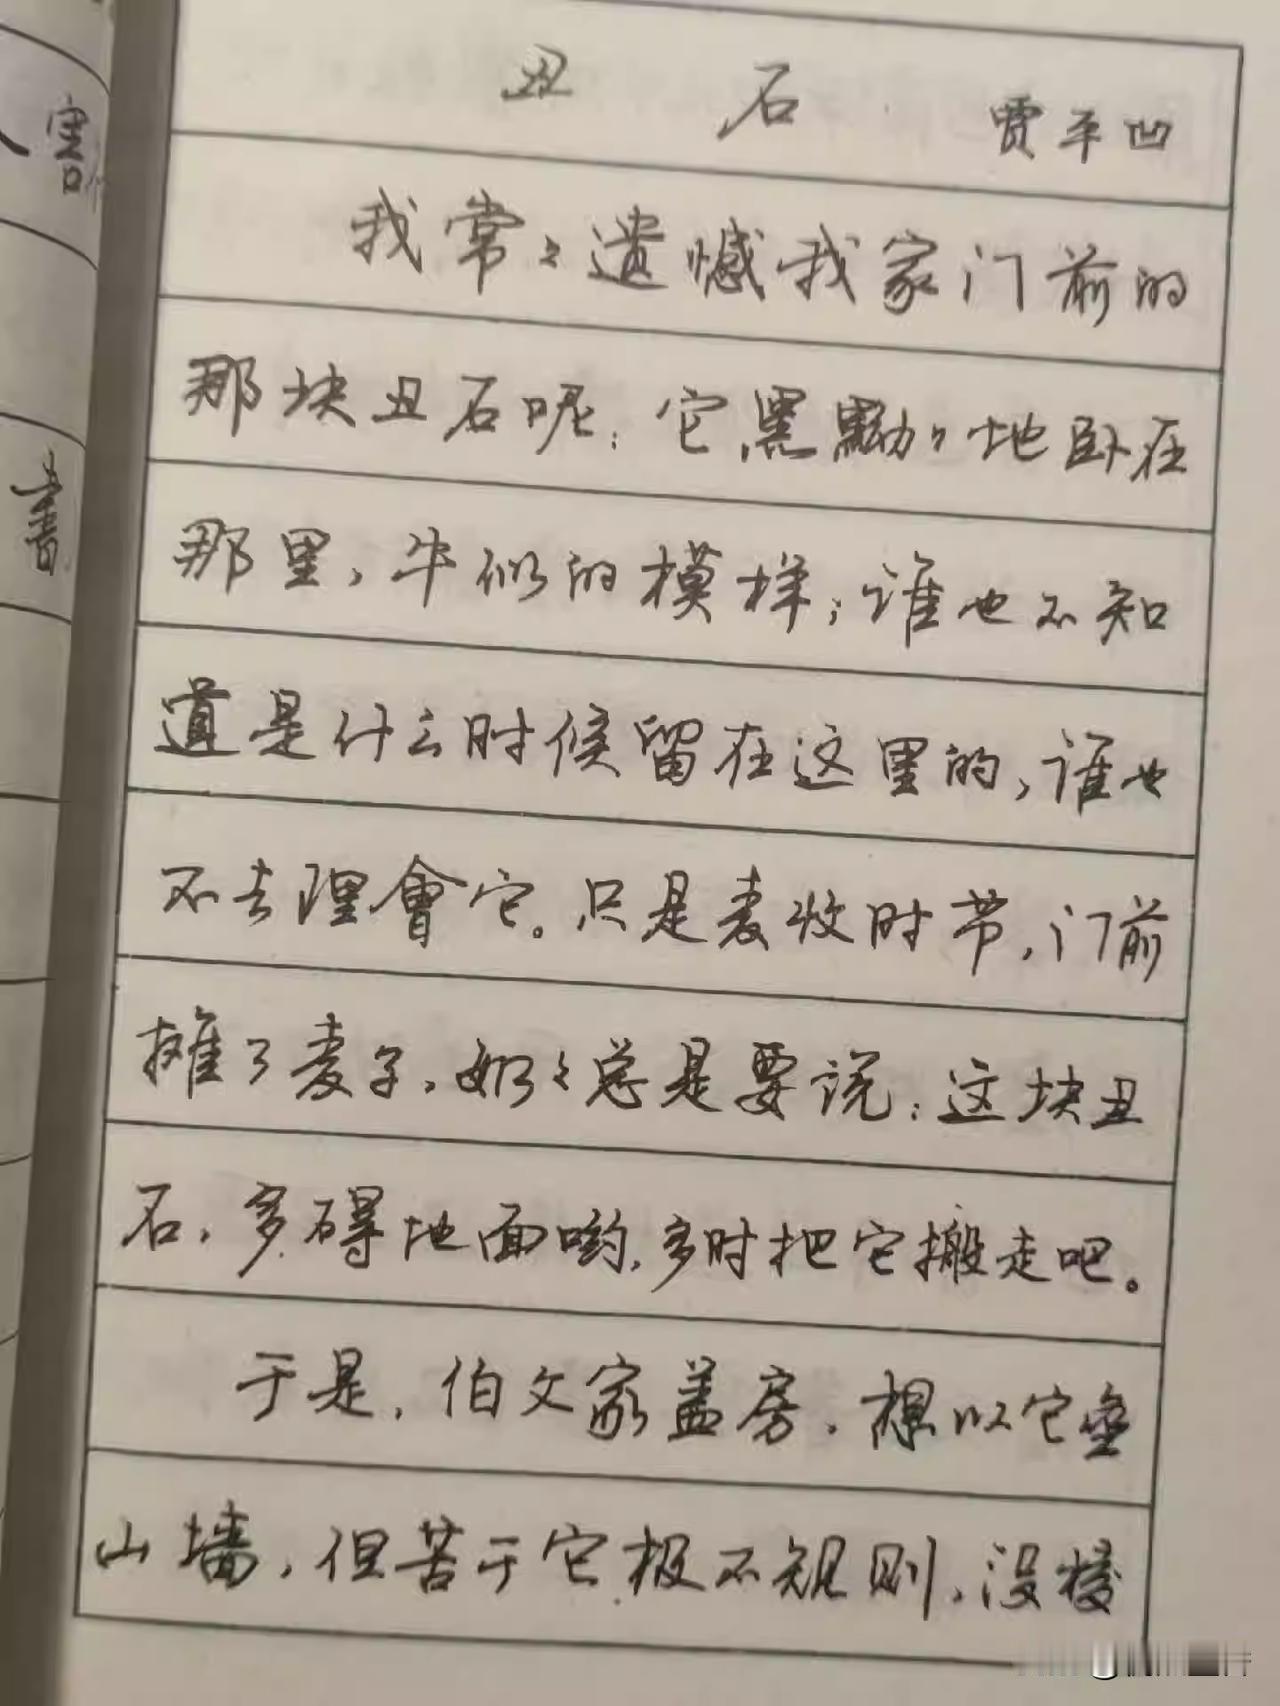 丑石 贾平凹
我常々遗憾我家门前的
那块丑石呢:它黑黝々地卧在
那里,牛似的模样;谁也不知
道是什么时候留在这里的,谁也
不去理會它。只是麦收时节,门前
摊了麦子,奶々总是要说:这块丑
石,多碍地面哟,多时把它搬走吧。
于是,伯父家盖房,想以它垒
山墙,但苦于它极不规则,没棱
害
書